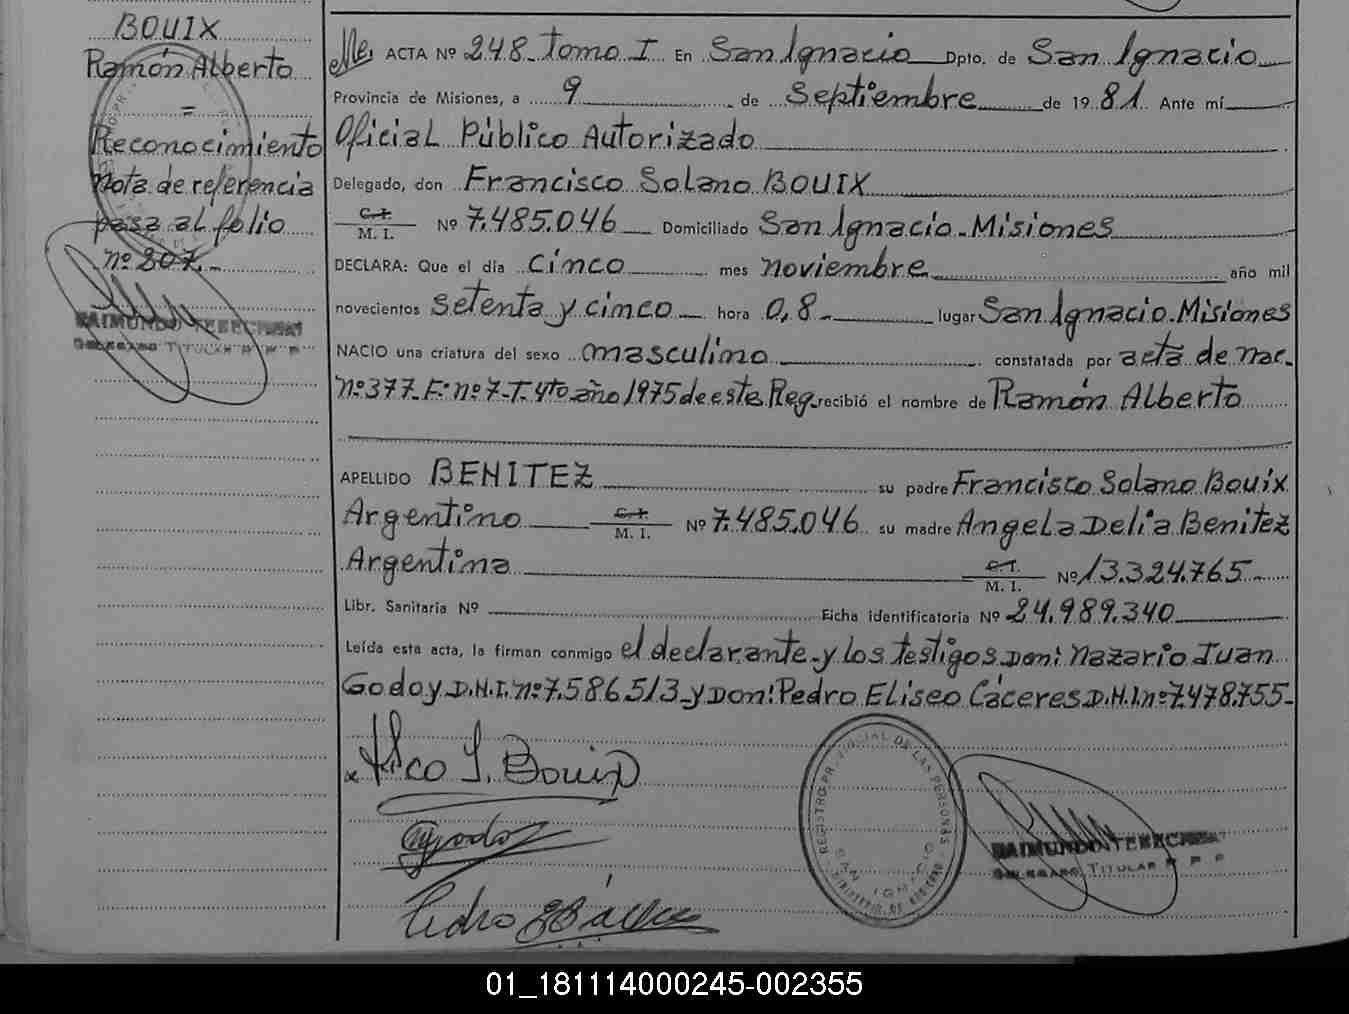 BOUIX
Ramón Alberto
=
Reconocimiento
Nota de referencia
pasa al folio
nº 307.-
RAIMUNDO TERECHEAT
DELEGADO TITULAR R P P
ACTA Nº 248- tomo I En San Ignacio Dpto. de San Ignacio
Provincia de Misiones, a 9 de Septiembre de 1981 Ante mí
Oficial Público Autorizado
Delegado, don Francisco Solano BOUIX
C. I.
M. I. Nº 7.485.046 Domiciliado San Ignacio-Misiones
DECLARA: Que el día cinco mes noviembre año mil
novecientos setenta y cinco hora 0,8- lugar San Ignacio-Misiones
NACIO una criatura del sexo masculino constatada por acta de nac-
nº 377-Fº nº 7-T. 4to año 1975 de este Reg. recibió el nombre de Ramón Alberto
APELLIDO BENITEZ su padre Francisco Solano Bouix
Argentino C. I.
M. I. Nº 7.485.046 su madre Angela Delia Benitez
Argentina C. I.
M. I. Nº 13.324.765-
Libr. Sanitaria Nº Ficha identificatoria Nº 24.989.340
Leída esta acta, la firman conmigo el declarante-y los testigos Don: Nazario Juan
Godoy D.N.I. nº 7.586513-y Don: Pedro Eliseo Cáceres D.N.I. nº 7.478.755-
Fco S. Bouix
Pedro E Cáceres
REGISTRO PROVINCIAL DE LAS PERSONAS
SAN IGNACIO
MINISTERIO DE GOBIERNO
RAIMUNDO TERECHEAT
DELEGADO TITULAR R P P
01_181114000245-002355